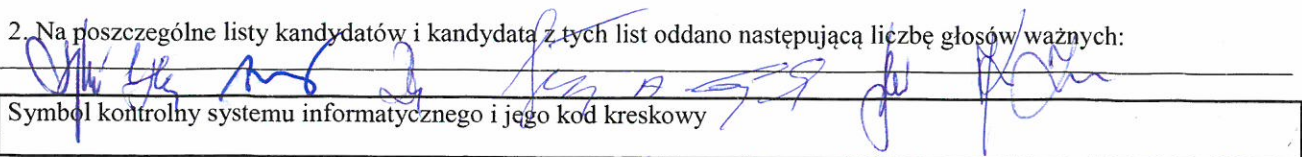 2. Na poszczególne listy kandydatów i kandydata z tych list oddano następującą liczbę głosów ważnych:
Symbol kontrolny systemu informatycznego i jego kod kreskowy